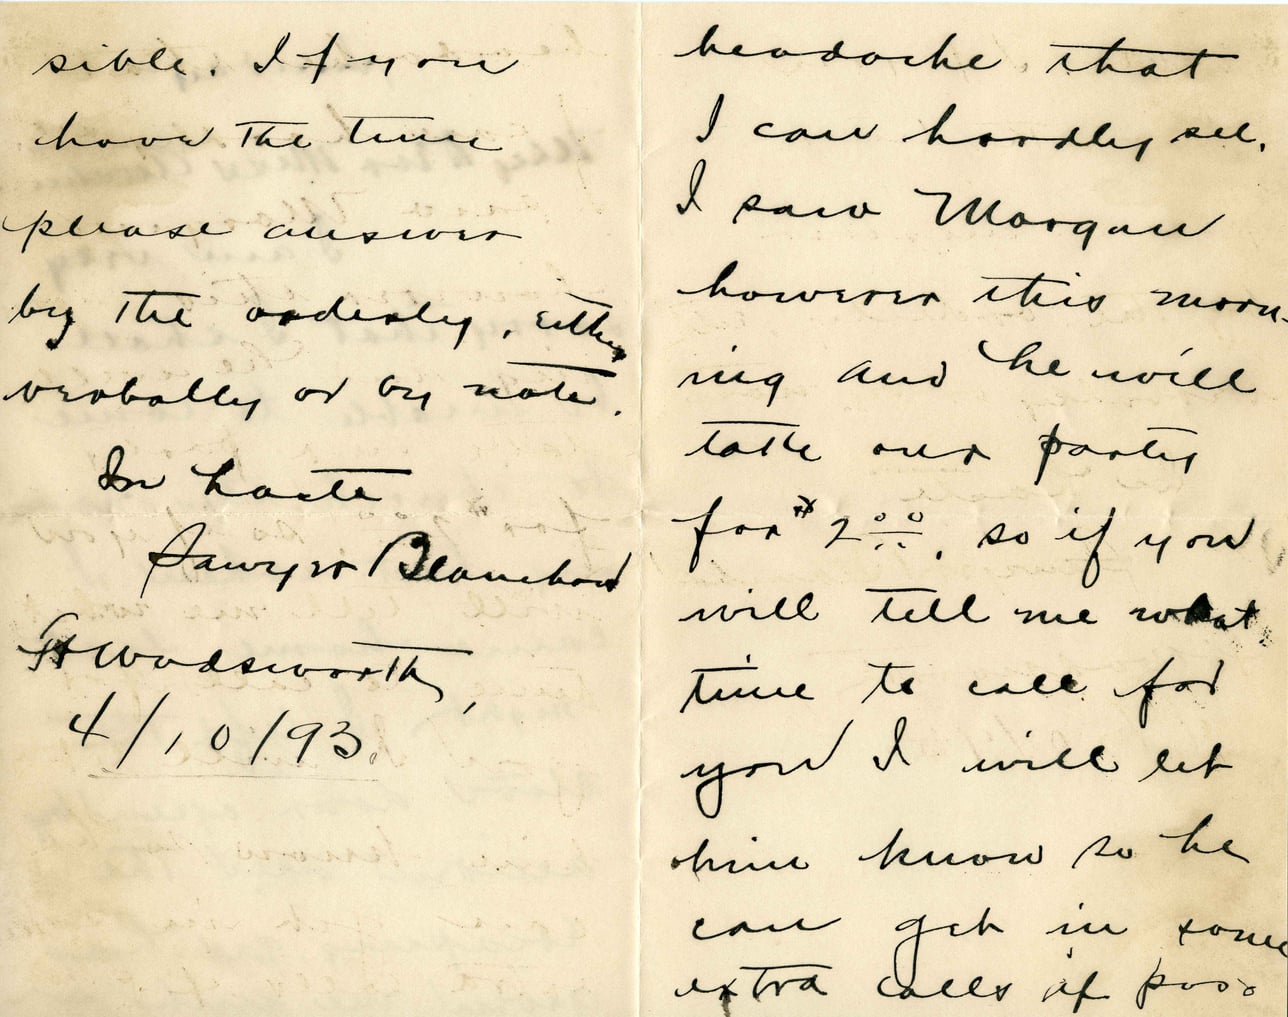 headache that
I can hardly see.
I saw Morgan
however this morn-
ing and he will
take our party
for $2 00. so if you
will tell me what
time to call for
you I will let
him know so he
can get in some
extra calls if pos-
sible. If you
have the time
please answer
by the orderly, either
verbally or by note.
In haste
Sawyer Blanchard
Ft Wadsworth,
4/10/93.